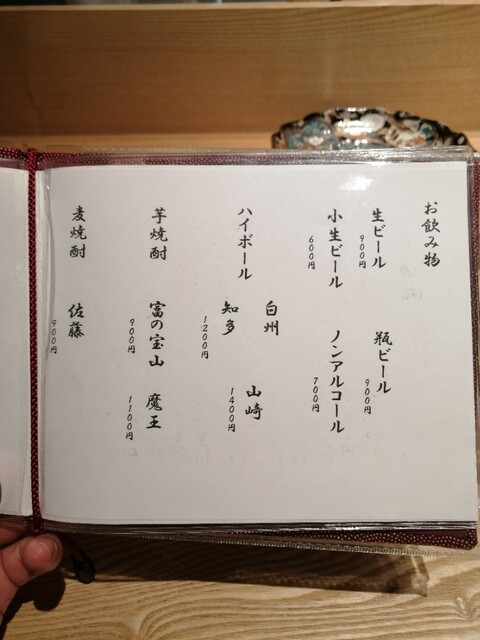 お飲み物
生ビール
900円
瓶ビール
900円
小生ビール
600円
ノンアルコール
700円
ハイボール
白州
山崎
1400円
知多
1200円
芋焼酎
富の宝山
900円
魔王
1100円
麦焼酎
佐藤
900円